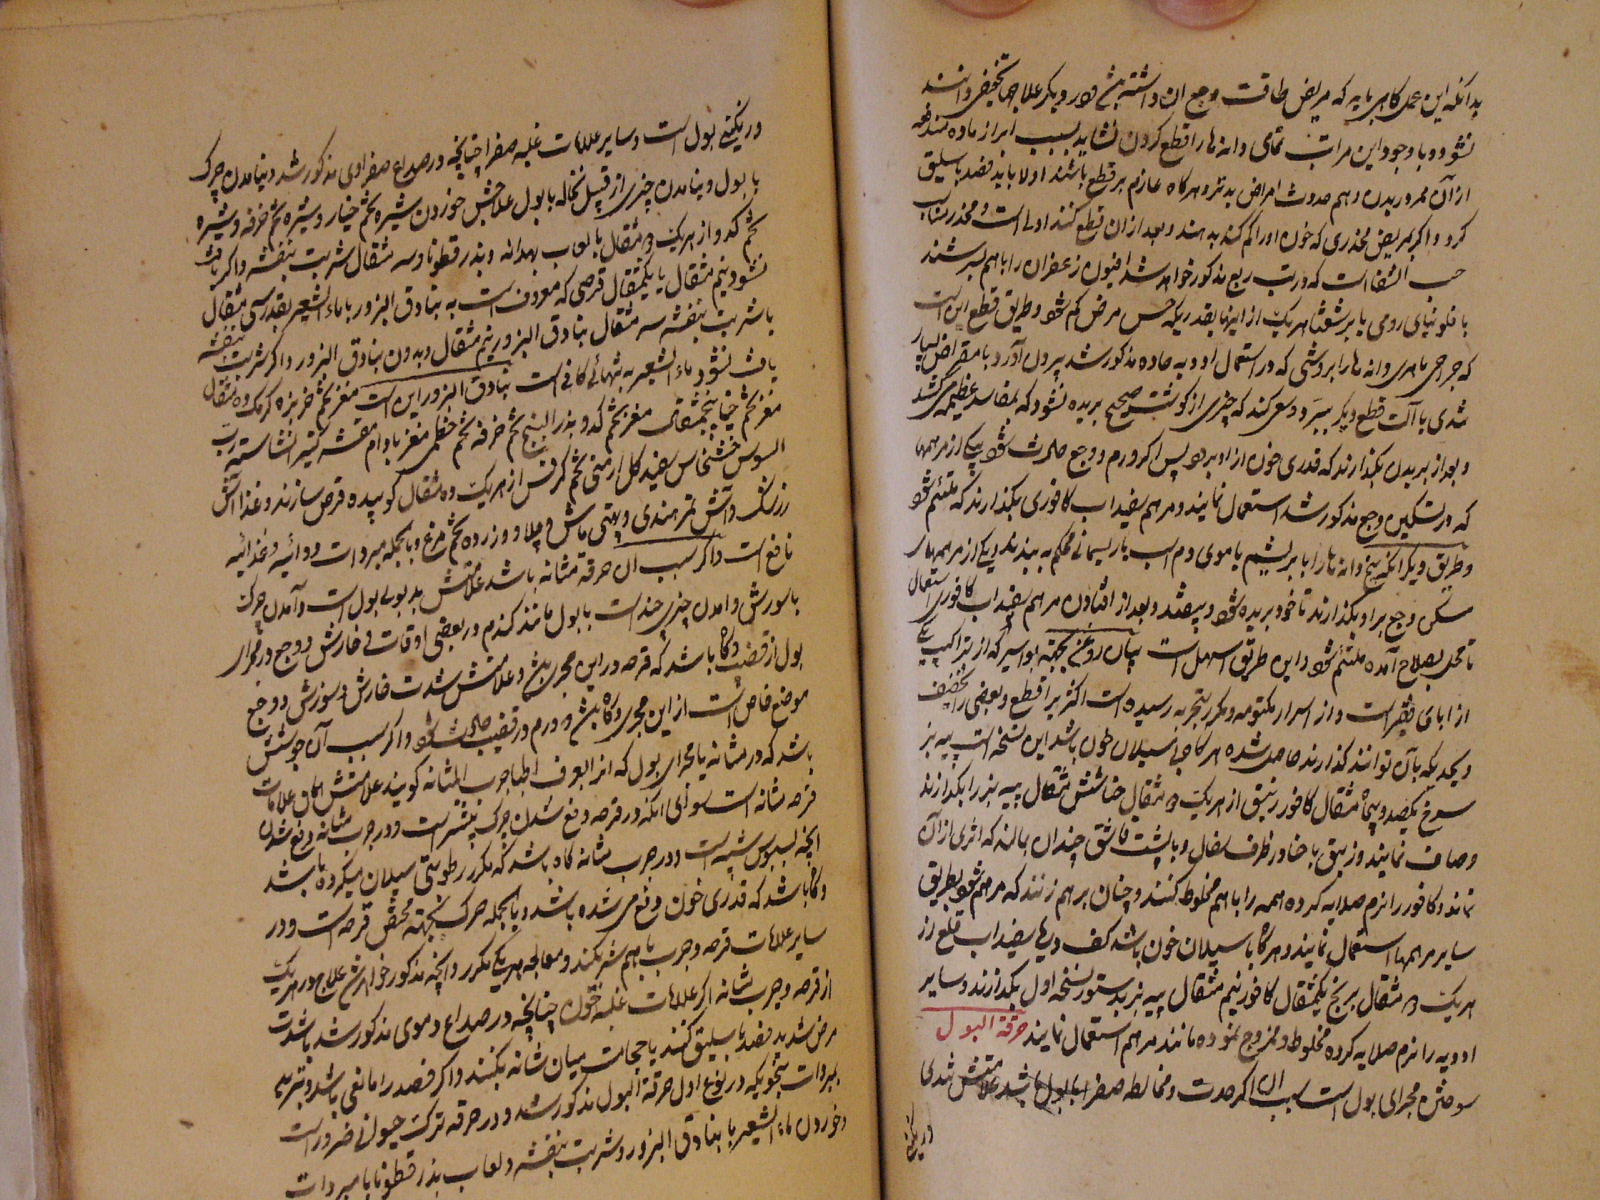 بدانکه این عمل کاهی باید که مریض طاقت وجع ان داشته باشد و در دیکر علاجها تخفیفی دانند
نشود و با وجود این مراتب تمامی دانه‌ها را قطع کردن نشاید بسبب ابراز ماده مندفعه
از آن ممر و ربدن و هم حدوث امراض بدتر و هرکاه عازم بر قطع باشند اولا باید فصد باسلیق
کرد و اکر بمریض مخدری که خون او را کم کند بدهند و بعد از ان قطع کنند اولی است و مخدر مناسب
حب الشفا است که در تب ربع مذکور خواهد شد افیون زعفران را باهم بسرشند
با فلونیای رومی یا برشعثا هریک از اینها بقدریکه حس مرض کم شود و طریق قطع این است
که جراحی ماهر دانه‌ها را بروشی که در استعمال ادویه حاده مذکور شد بیرون آورد با مقراض بسیار
تندی یا آلت قطع دیکر ببرد و سعی کند که چیزی از کوشت صحیح بریده نشود که بمفاسد عظیمه می‌کشد
و بعد از بریدن بکذارند که قدری خون از او برود پس اکر ورم و وجع حادث شود یکی از مرهمها
که در تسکین وجع مذکور شد استعمال نمایند و مرهم سفیداب کافوری بکذارند که ملتئم شود
و طریق دیکر آنکه بیخ دانه‌ها را با بریشم یا موی دم اسب یا ریسمانی محکم به بندند و یکی از مرهمهای
مسکن وجع بر او بکذارند تا خود بریده شود و بیفتد و بعد از افتادن مرهم سفیداب کافوری استعمال
تا محل بصلاح آمده ملتئم شود و این طریق اسهل است بیان روغن بجهة بواسیر که از تراکیب یکی
از ابای فقیر است و از اسرار مکتومه و مکرر بتجربه رسیده است اکثر را قطع و بعضی را تخفیف
و بحدیکه بآن توانند کذارند حاصل شده هرکاه بی سیلان خون باشد این نسخه است پیه بز
سرخ یکصد و پنجاه مثقال کافور زیبق از هریک ده مثقال خشاشش مثقال پیه بز را بکدازند
و صاف نمایند و زیبق با حنا در ظرف سفال و با پشت قاشق چندان بمالند که اثری از آن
نماند و کافور را نرم صلایه کرده همه را باهم مخلوط کنند و چنان برهم زنند که مرهم شود بطریق
سایر مرهمها استعمال نمایند و هرکاه با سیلان خون باشد کف دریا سفیداب قلع رز
هریک ده مثقال برنج یکمثقال کافور نیم مثقال پیه بز بدستور نسخه اول بکدازند و سایر
ادویه را نرم صلایه کرده مخلوط و ممزوج نموده مانند مرهم استعمال نمایند حرقة البول
سوختن مجرای بول است سبب ان اکر حدت و مخالطه صفرا با بول باشد علامتش تندی
در نکینی
در نکینی بول است و سایر علامات غلبه صفرا چنانچه در صداع صفراوی مذکور شد و نیامدن چرک
با بول و نیامدن چیزی از قبیل نخاله با بول علاجش خوردن شیره تخم خیار و شیره تخم خرفه و شیره
تخم کدو از هریک ده مثقال با لعاب بهدانه و بذر قطونا و سه مثقال شربت بنفشه و اکر یافت
نشود نیم مثقال یا یکمثقال قرصی که معروف است به بنادق البزور با ماء الشعیر بقدر سی مثقال
با شربت بنفشه سه مثقال بنادق البزور نیم مثقال و بدون بنادق البزور و اکر شربت بنفشه
یافت نشود ماء الشعیر به تنهائی کافی است بنادق البزور این است مغز تخم خربزه کرمک ده مثقال
مغز تخم خیار پنجمثقال مغز تخم کدو بذر البنج تخم خرفه تخم خطمی مغز بادام مقشر کتیرا نشاسته رب
السوس خشخاش سفید کل ارمنی تخم کرفس از هریک ده مثقال کوبیده قرص سازند و غذا آش
زرشک و آش تمرهندی و پهتی ماش و چلاو و زرده تخم مرغ و بالجمله مبردات دوائیه و غذائیه
نافع است و اکر سبب ان حرقة مثانه باشد علامتش بدبوئی بول است و آمدن چرک
با سوزش و امدن چیزی چند است با بول مانند کندم و در بعضی اوقات فی خارش و وجع در مجرای
بول از قضیب و کاه باشد که قرحه در این مجری باشد و علامتش شدت خارش و سوزش و وجع
موضع خاص است از این مجری و کاه باشد و ورم در قضیب حادث شود و اکر سبب آن جوششی
باشد که در مثانه یا مجرای بول که انرا بعرف اطبا جرب المثانه کویند علامتش همان علامات
قرحه مثانه است سوای آنکه در قرحه دفع شدن چرک بیشتر است و در جرب مثانه دفع شدن
آنچه بسبوس شبیه است و در جرب مثانه کاه باشد که مکرر رطوبتی سیلان میکرده باشد
و کاه باشد که قدری خون دفع می‌شده باشد و بالجمله چرک بجهته محض قرحه است و در
سایر علامات قرحه و جرب باهم شریکند و معالجه هریک مکرر و انچه مذکور خواهد شد علاج در هریک
از قرحه و جرب مثانه اکر علامات غلبه خون چنانچه در صداع دموی مذکور شد باشد
مرض شدید فصد باسلیق کنند یا حجامت میان شانه بکنند و اکر فصد را مانعی باشد و تبرید
بمبردات بنحویکه در نوع اول حرقة البول مذکور شد و در حرقه ترک حیوانی ضرور است
و خوردن ماء الشعیر با بنادق البزور و شربت بنفشه و لعاب بذر قطونا با مبردات